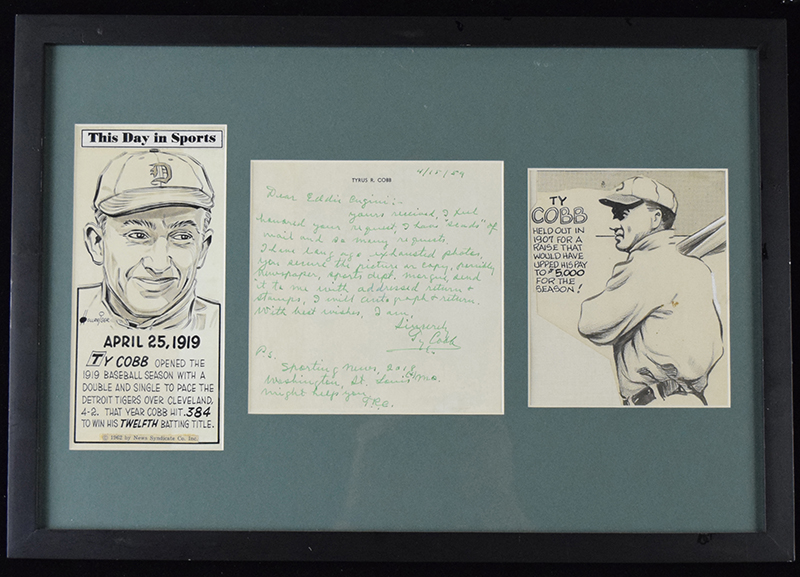 This Day in Sports
D
APRIL 25, 1919
TY COBB OPENED THE
1919 BASEBALL SEASON WITH A
DOUBLE AND SINGLE TO PACE THE
DETROIT TIGERS OVER CLEVELAND,
4-2. THAT YEAR COBB HIT .384
TO WIN HIS TWELFTH BATTING TITLE.
© 1962 by News Syndicate Co. Inc.
4/15/59
TYRUS R. COBB
Dear Eddie
yours received, I
honored your request, I have "scads" of
mail and so many requests
I have long ago exhausted photos,
you secure the picture or copy, possibly
newspaper, sports dept. send
it to me with addressed return +
stamps, I will autograph + return.
With best wishes, I am,
Sincerely
Ty Cobb
P.S.
Sporting News, 2018
Washington, St. Louis Mo.
might help you
T.R.C.
TY
COBB
HELD OUT IN
1907 FOR A
RAISE THAT
WOULD HAVE
UPPED HIS PAY
TO $5,000
FOR THE
SEASON!